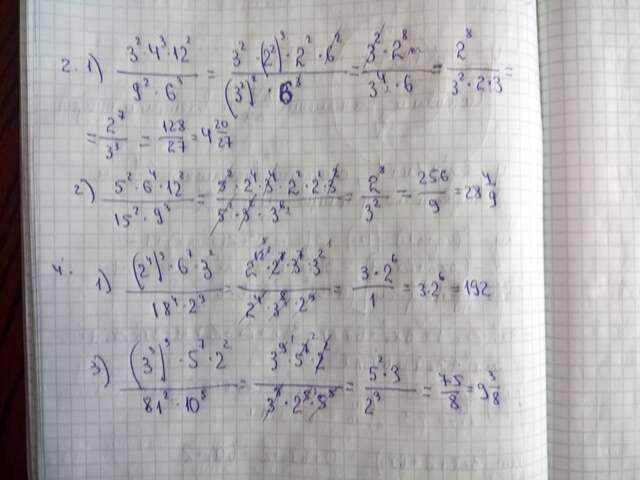 2. 1) (3²·4³·12²)/(9²·6³) = (3²·(2²)³·2²·6²)/((3²)²·6³) = (3²·2⁸)/(3⁴·6) = 2⁸/(3²·2·3) =
= 2⁷/3³ = 128/27 = 4 20/27
2) (5²·6⁴·12²)/(15²·9³) = (5²·2⁴·3⁴·2²·2²·3²)/(5²·3²·3⁶) = 2⁸/3² = 256/9 = 28 4/9
4. 1) ((2⁴)³·6⁷·3²)/(18⁴·2⁹) = 3·2⁶/1 = 3·2⁶ = 192
3) ((3³)³·5⁷·2²)/(81²·10⁵) = (3⁹·5⁷·2²)/(3⁸·2⁵·5⁵) = (5²·3)/2³ = 75/8 = 9 3/8